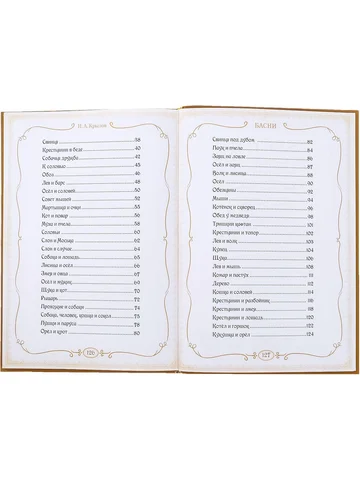 И. А. Крылов
Свинья 38
Крестьянин в беде 40
Собачья дружба 42
К соловью 45
Обоз 46
Лев и барс 48
Осёл и соловей 50
Совет мышей 52
Мартышка и очки 54
Кот и повар 56
Муха и пчела 58
Соловьи 60
Слон и Моська 62
Слон в случае 64
Собака и лошадь 65
Лисица и осёл 66
Змея и овца 68
Осёл и мужик 69
Щука и кот 70
Рыцарь 72
Прохожие и собаки 74
Собака, человек, кошка и сокол 75
Пушки и паруса 76
Орёл и крот 80
126
БАСНИ
Свинья под дубом 82
Паук и пчела 84
Заяц на ловле 86
Осёл и заяц 87
Волк и лисица 88
Осёл 90
Обезьяны 92
Мыши 94
Котёнок и скворец 96
Обед у медведя 98
Тришкин кафтан 100
Крестьянин и топор 102
Лев и волк 103
Конец 104
Щука 106
Лев и мышь 108
Комар и пастух 110
Дерево 112
Кошка и соловей 114
Крестьянин и разбойник 116
Крестьянин и змея 118
Крестьянин и лошадь 120
Котёл и горшок 122
Кукушка и орёл 124
127